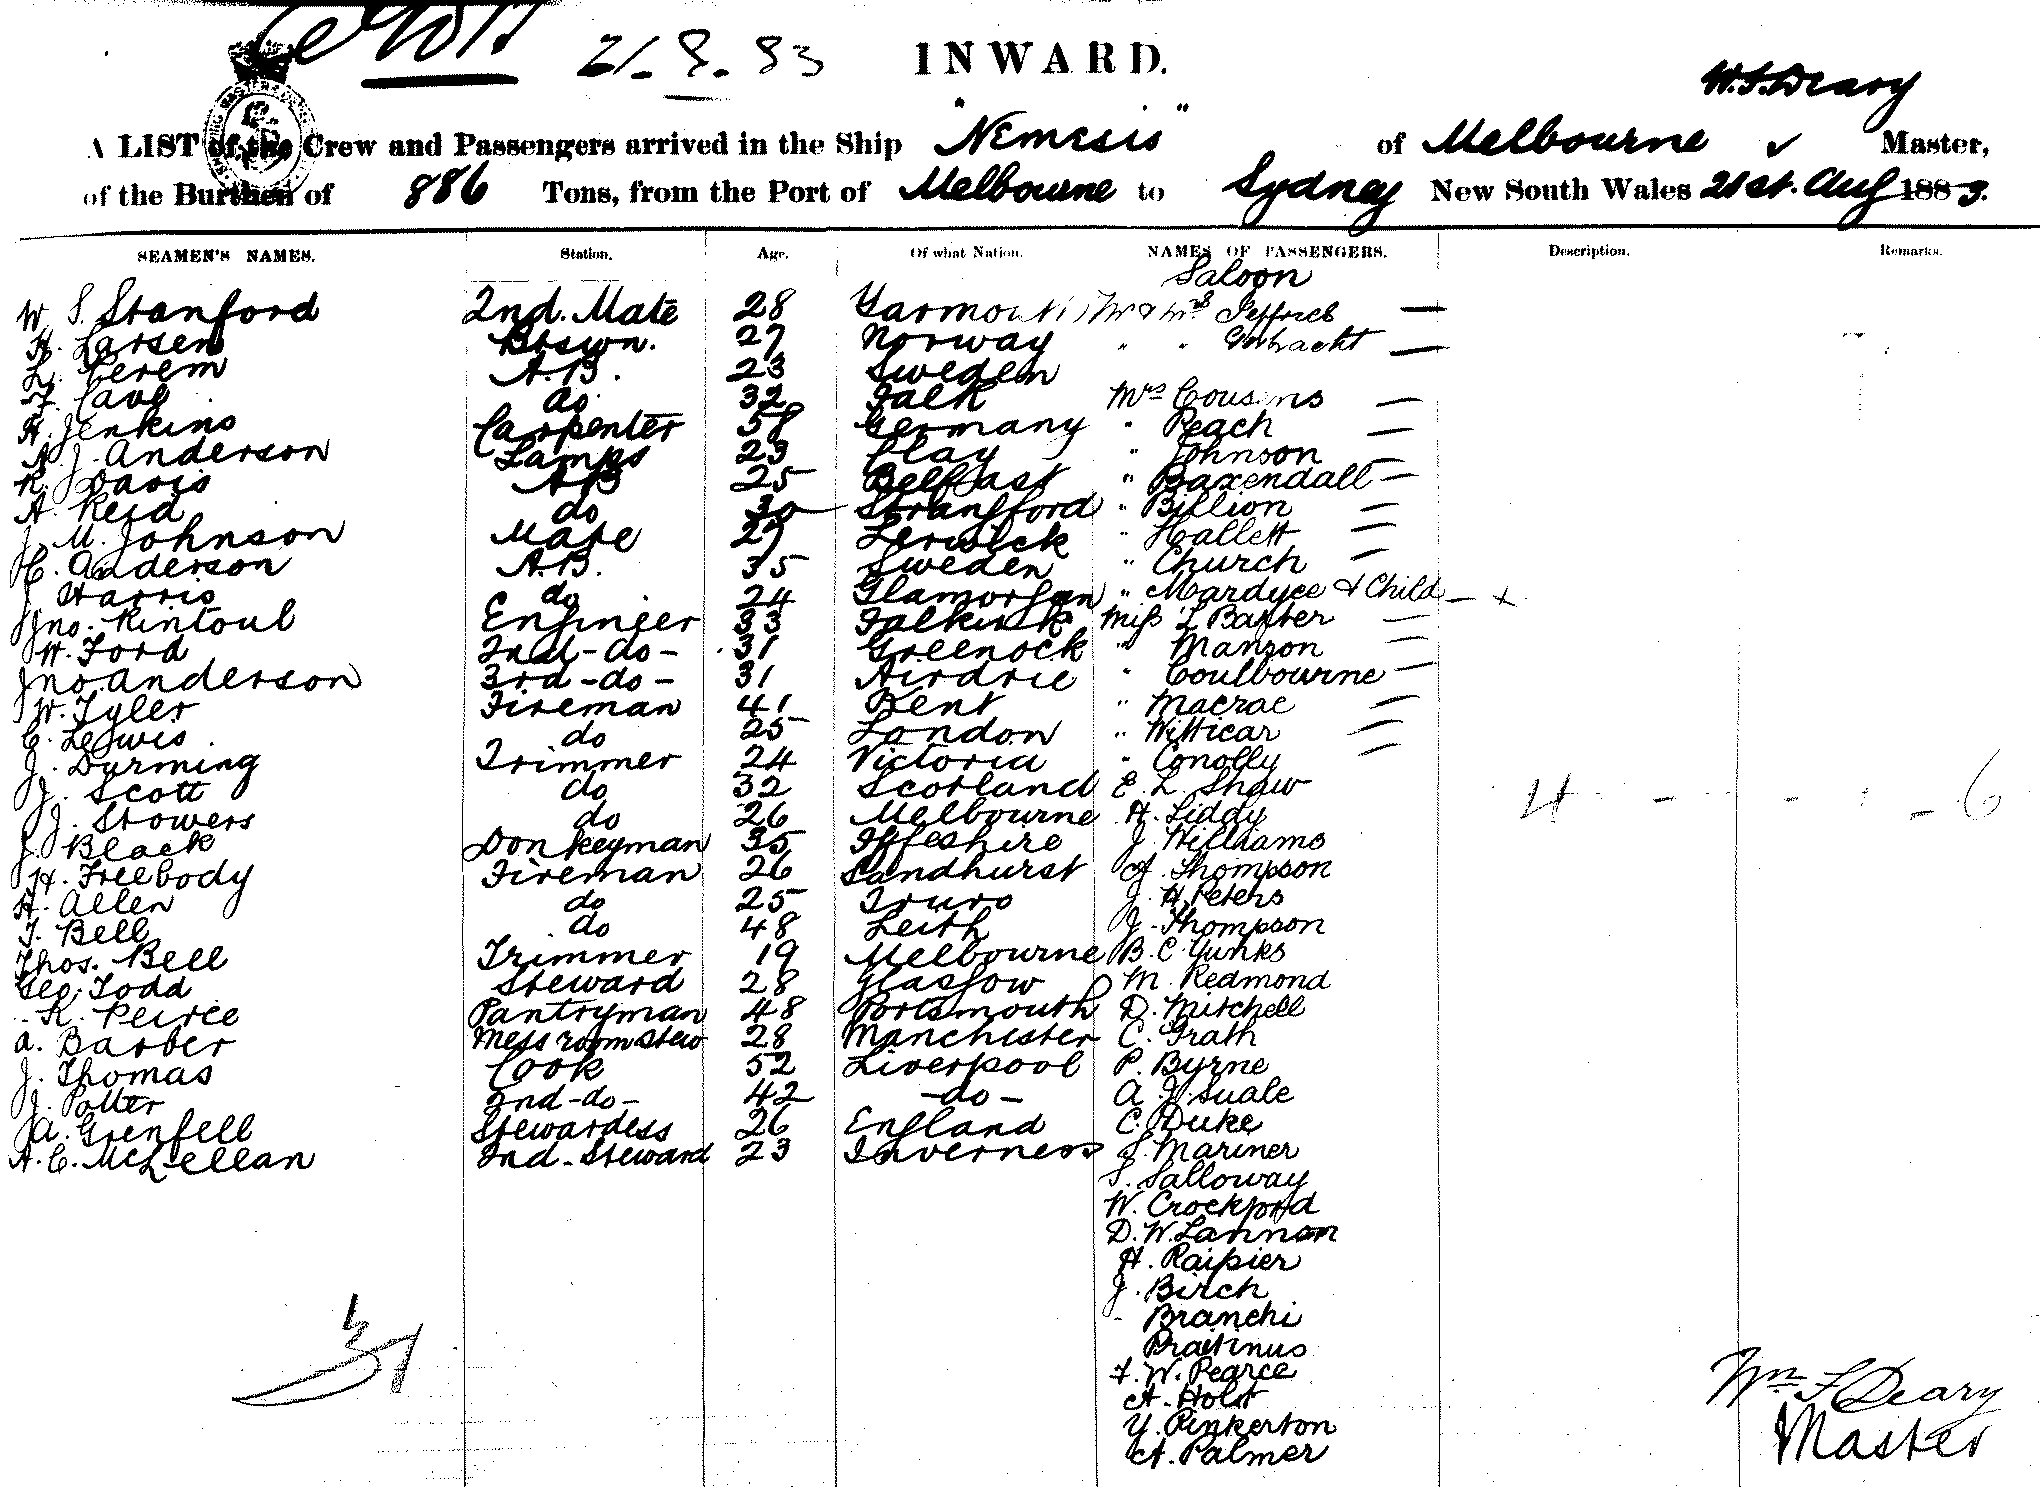 21. 8. 83 INWARD.
W. S. Deary
A LIST of the Crew and Passengers arrived in the Ship "Nemesis" of Melbourne Master,
of the Burthen of 886 Tons, from the Port of Melbourne to Sydney New South Wales 21st. Aug 1883.
SEAMEN'S NAMES. Station. Age. Of what Nation. NAMES OF PASSENGERS. Description. Remarks.
Saloon
W. S. Stanford 2nd. Mate 28 Yarmouth Mr & Mrs Jeffries —
H. Larsen Boswn. 27 Norway " " —
L. Cerem A.B. 23 Sweden
F. Cave do 32 Mrs Cousens —
H. Jenkins Carpenter 58 Germany " Peach —
A. J. Anderson Lamps 23 Clay " Johnson —
R. Davis AB 25 Belfast " Baxendall —
A. Reid do 30 Strangford " Billion —
J. M. Johnson Mate 27 Lerwick " Hallett —
C. Anderson A.B. 35 Sweden " Church —
J Harris do 24 Glamorgan " Mardyce & Child — +
Jno. Rintoul Engineer 33 Falkirk Miss L Baxter —
W. Ford 2nd - do - 31 Greenock " Manson —
Jno. Anderson 3rd - do - 31 Airdrie " Coulbourne —
W. Tyler Fireman 41 Kent " Macrae —
C. Lewis. do 25 London " Witticar —
J. Durming Trimmer 24 Victoria " Conolly —
J. Scott do 32 Scotland E. L. Shaw
J. Stowers do 26 Melbourne H. Liddy 4 - - - - 6
J. Black Donkeyman 35 Fifeshire J. Williams
H. Freebody Fireman 26 Sandhurst A. Thompson
A. Allen do 25 Truro J. H. Peters
T. Bell do 48 Leith J. Thompson
Thos. Bell Trimmer 19 Melbourne B. C. Yunks
Geo. Todd Steward 28 Glasgow M. Redmond
R. Peirce Pantryman 48 Portsmouth D. Mitchell
A. Barber Mess room stew 28 Manchester C. Grath
J. Thomas Cook 52 Liverpool P. Byrne
J. Potter 2nd - do - 42 - do - A. J. Suale
A. Grenfell Stewardess 26 England C. Duke
A. C. McLellan 2nd - Steward 23 Inverness S. Mariner
S. Salloway
W. Crockford
D. W. Lannan
H. Raipier
J. Birch
Branchi
Praetinus
F. W. Pearce
A. Holst
Y. Pinkerton
A. Palmer
31
Wm F Deary
Master